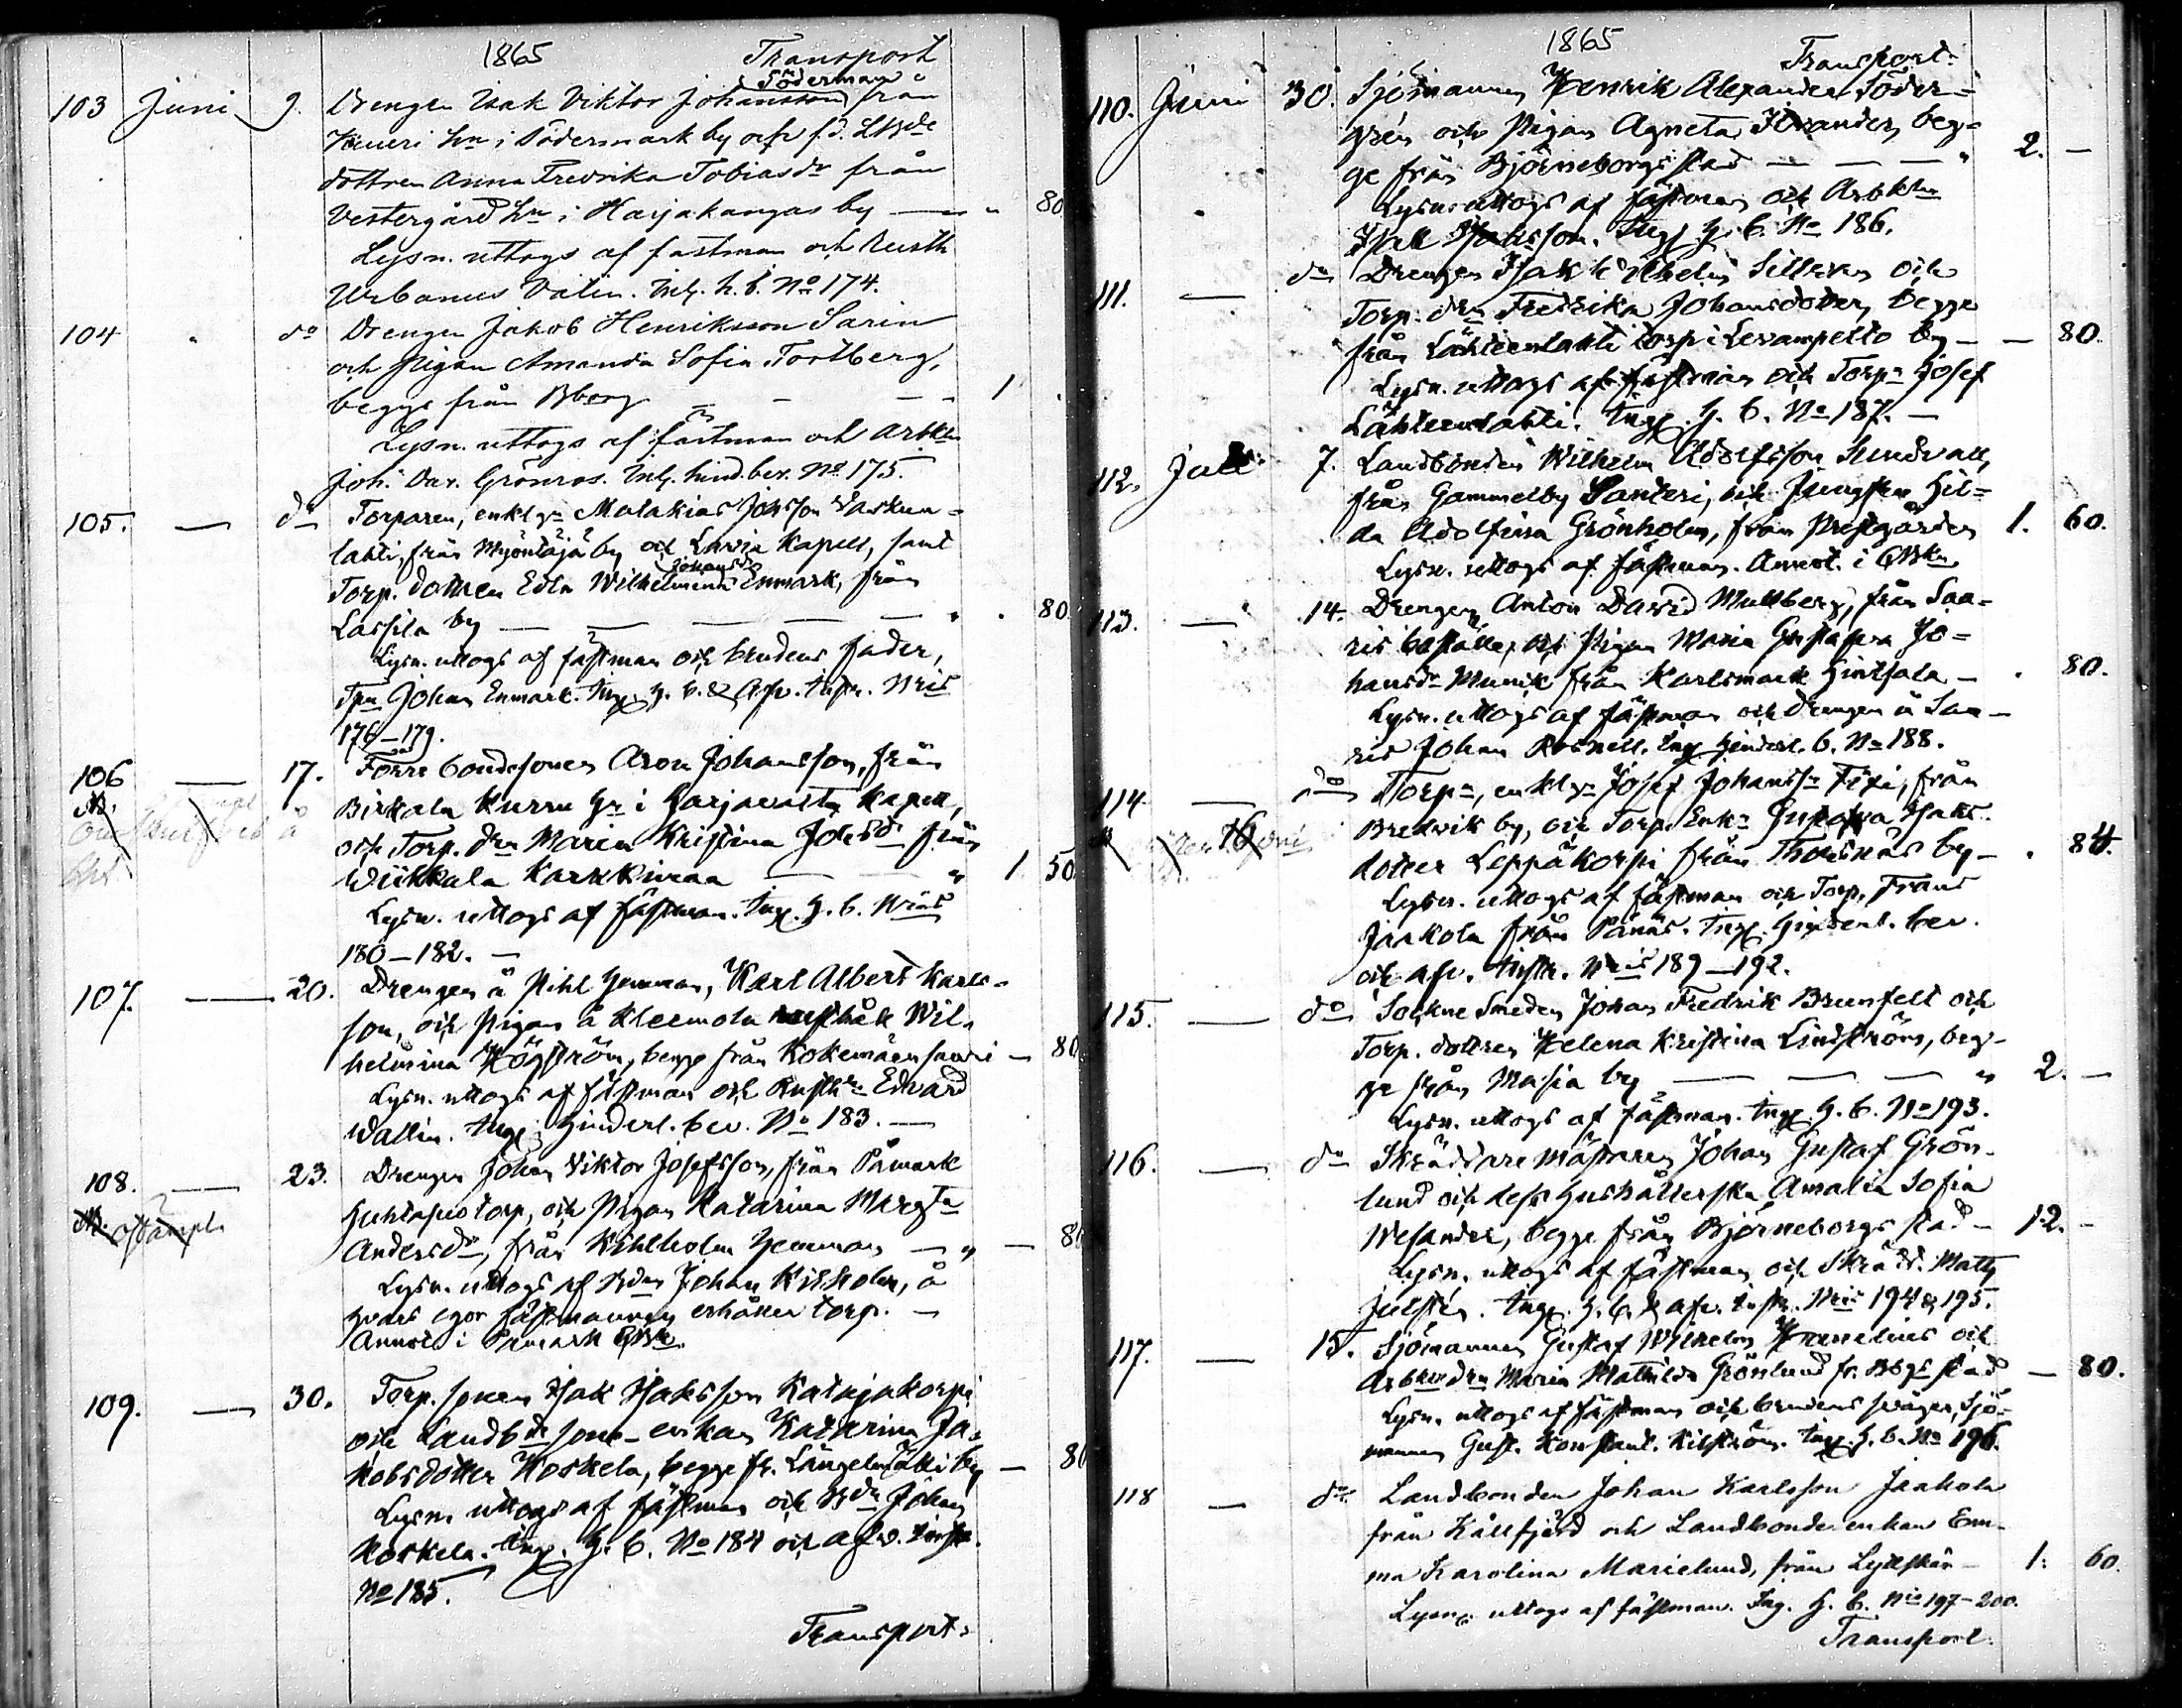 1865 Transport
Söderman
103 Juni 9. Drengen Isak Viktor Johansson från
hn i Södermark by och f.d. LBde
dottren Anna Fredrika Tobiasdr från
Vestergård hn i Harjakangas by — " 80
Lysn. uttogs af fästman och Rusth
Urbanus Valin. Inl. h. b. No 174.
104 " do Drengen Jakob Henriksson Sarin
och pigan Amanda Sofia Torstberg,
begge från Bborg — — — 1 .
Lysn. uttogs af fästman och Arbkn
Joh. Dav. Grönros. Inl. hind. bev. No 175.
105. — do Torparen, enkl. Malakias Johsson
lahti, från by och Lavia Kapell, samt
Johansdr
Torp. dottren Edla Wilhelmina Enmark, från
Lassila by — — — — " . 80
Lysn. uttogs af fästman och brudens fader,
Tpn Johan Enmark. Ing. h. b. & Afv. Nris
176–179.
106 — 17. Förre bondesonen Aron Johansson, från
Birkala Kurru hn i Harjavalta Kapell,
och Torp. drn Maria Kristina Johsdr från
Wiikkala Karkkimaa — — " 1 50
Lysn. uttogs af fästman. Ing. h. b. Nris
180–182. —
107. — 20. Drengen å Pihl hemman, Karl Albert Karls-
son, och Pigan å Kleemola rusthåll Wil-
helmina Högström, begge från Kokemäen saari — 80
Lysn. uttogs af fästman och Rusthn Edvard
Wallin. Ing. Hinderl. bev. No 183. —
108. — 23. Drengen Johan Viktor Josefsson, från Påmark
torp, och Pigan Katarina Margta
Andersdr, från Kihlholm hemman — " — 80
Lysn. uttogs af Bdn Johan Kihlholm, å
hvars egor fästmannen erhåller torp. —
Annot. i Påmark
109. — 30. Torp. sonen Isak Isaksson Katajakorpi
och Landbde sone-enkan Katarina Ja-
kobsdotter Koskela, begge fr. Längelmäki by — 80
Lysn. uttogs af fästman och Bdn Johan
Koskela. Ing. h. b. No 184 och afv. 
No 185.
Transport
1865
Transport
110. Juni 30. Sjömannen Henrik Alexander Söder-
grén och Pigan Agneta beg-
ge från Björneborgs stad — — — " 2. —
Lysn. uttogs af fästman och Arbkln
Isak Ing. h. b. No 186.
111. — do Drengen Isak Vilhelm och
Torp. drn Fredrika Johansdotter, begge
från Lähteenlahti torp i Levanpelto by — — 80.
Lysn. uttogs af fästman och Torpn Josef
Lähteenlahti. Ing. h. b. No 187. —
112. Juli 7. Landbonden Wilhelm Adolfsson Sundvall,
från Gammelby Santeri, och Jungfrun Hil-
da Adolfina Grönholm, från Prestgården 1. 60.
Lysn. uttogs af fästman. Annot. i
113. — 14. Drengen Anton David Mullberg, från Saa-
ris och Pigan Maria Gustafva Jo-
hansdr Munck från Karlsmark — . 80.
Lysn. uttogs af fästman och drengen å Saa-
ris Johan Rosnell. Ing. hinderl. b. No 188.
114 — do Torpn, enkl. Josef Johanssn från
Bredvik by, och Torp. Enkn Gustafva Isaks-
dotter Leppäkorpi från Thorsnäs by — . 84.
Lysn. uttogs af fästman och Torp. Frans
Jaakola från Pånäs. Ing. Hinderl. bev.
och afv. Nris 189–192.
115. — do Sockne Smeden Johan Fredrik Brunfelt och
Torp. dottren Helena Kristina Lindström, beg-
ge från Masia by — — — " 2. —
Lysn. uttogs af fästman. Ing. h. b. No 193.
116. — do Skräddare mästaren Johan Gustaf Grön-
lund och dess hushållerska Amalia Sofia
Wesander, begge från Björneborgs stad — 12. —
Lysn. uttogs af fästman och Skrädd. Matts
Julsén. Ing. h. b. & afv. Nris 194 & 195.
117. — 15. Sjömannen Gustaf Wilhelm och
drn Maria Mathilda Grönlund fr. Bbgs stad — 80.
Lysn. uttogs af fästman och brudens svåger, Sjö-
mannen Gust. Konstant. Kihlström. Ing. h. b. No 196.
118 — do Landbonden Johan Karlsson Jaakola
från Kållfjärd och Landbonde enkan Em-
ma Karolina Marielund, från Lyttskär — 1. 60.
Lysn. uttogs af fästman. Ing. h. b. Nris 197–200.
Transport.